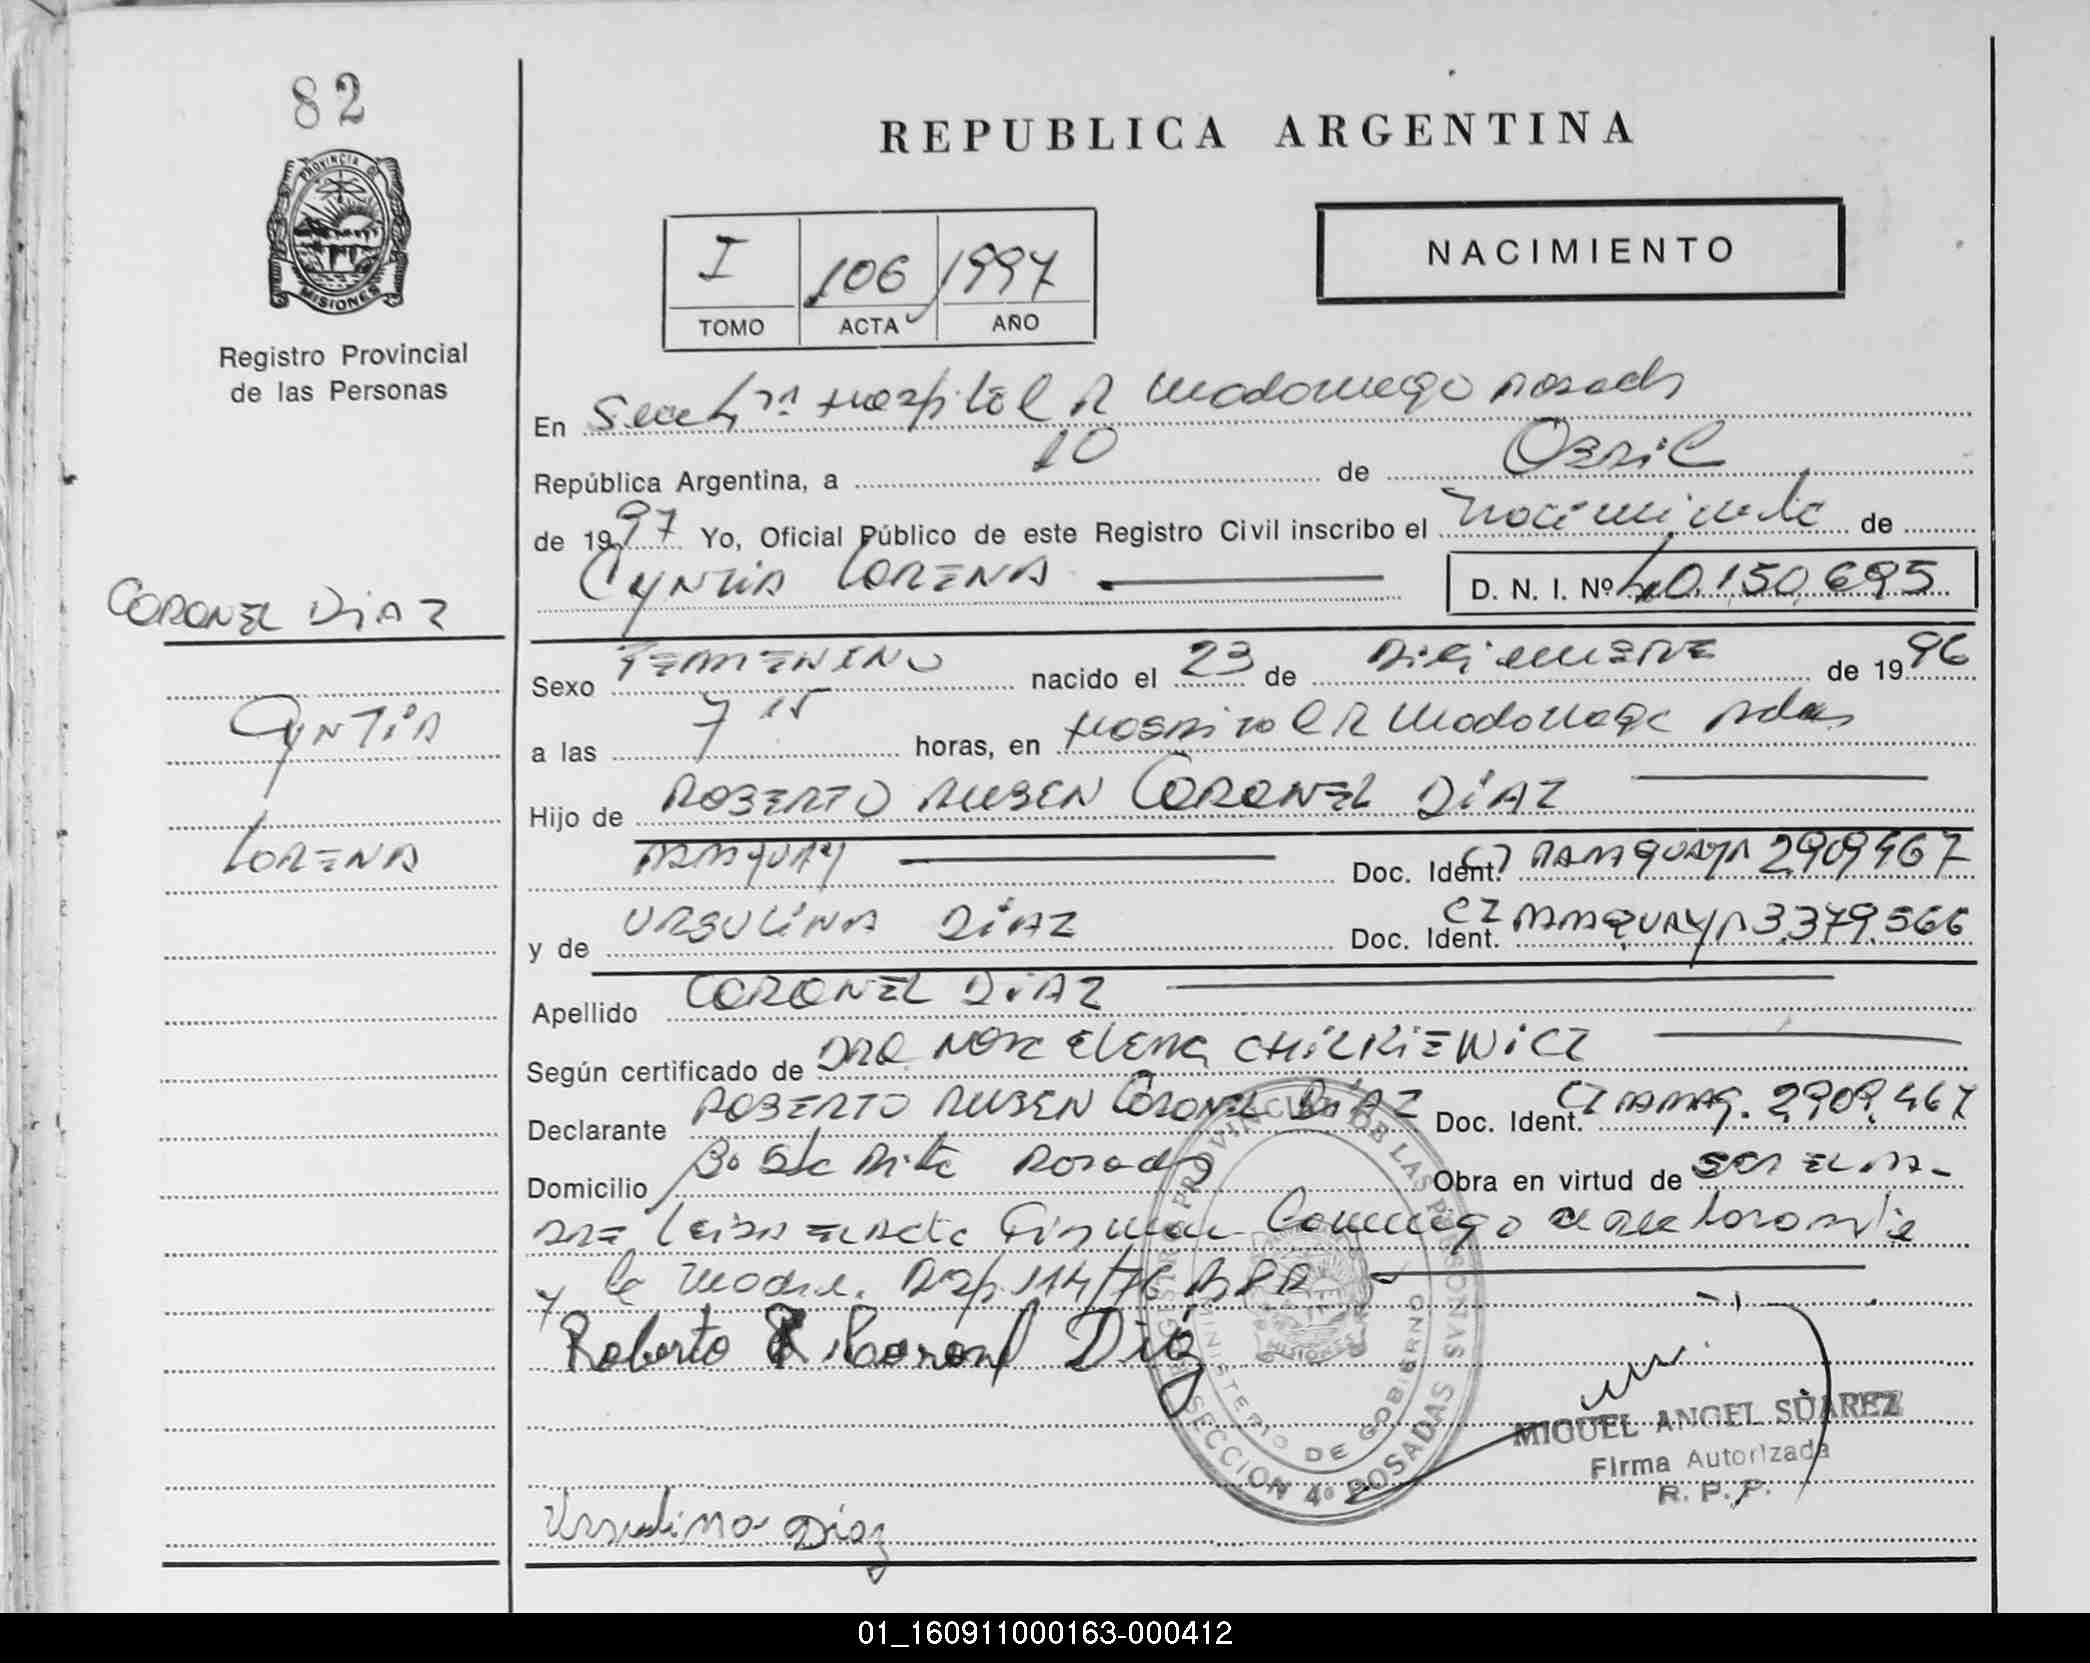 82
PROVINCIA DE
MISIONES
Registro Provincial
de las Personas
CORONEL DiAZ
CyNTiA
LORENA
REPUBLICA ARGENTINA
I 106 1997
TOMO ACTA AÑO
NACIMIENTO
En Hospital R Madariaga Posadas
República Argentina, a 10 de Abril
de 1997 Yo, Oficial Público de este Registro Civil inscribo el Nacimiento de
CyNTiA LORENA D. N. I. Nº 40.150.695
Sexo FEMENINO nacido el 23 de Diciembre de 1996
a las 7 15 horas, en Hospital R Madariaga Pdas
Hijo de ROBERTO RUBEN CORONEL DiAZ
PARAGUAY Doc. Ident. CI PARAGUAYA 2.909.467
y de URSULiNA DiAZ Doc. Ident. CI PARAGUAYA 3.379.566
Apellido CORONEL DiAZ
Según certificado de DRA ELENA CHiLKiEWiCZ
Declarante ROBERTO RUBEN CORONEL DiAZ Doc. Ident. CI PARAG. 2.909.467
Domicilio Bo Sta Rita Posadas Obra en virtud de SER EL PA-
DRE Leida el Acta Firman Conmigo el declarante
y la Madre. Disp. 114/76 DPR
Roberto R. Coronel Diaz
REGISTRO PROVINCIAL DE LAS PERSONAS
MINISTERIO DE GOBIERNO
MISIONES
SECCION 4º POSADAS
MIGUEL ANGEL SUAREZ
Firma Autorizada
R. P. P.
Ursulina Diaz
01_160911000163-000412